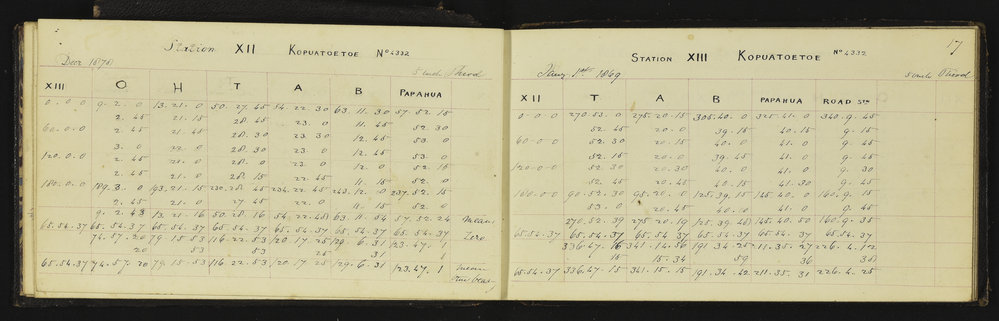 Station XII KOPUATOETOE No 4332
Decr 1870
5 inch Theod
XIII O H T A B PAPAHUA
0.0.0 9.2.0 13.21.0 50.27.45 54.22.30 63.11.30 57.52.15
2.45 21.15 28.45 23.0 11.45 52.30
60.0.0 2.45 21.45 28.30 23.30 12.45 53.0
3.0 22.0 28.30 23.0 12.45 53.0
120.0.0 2.45 21.0 28.0 23.0 12.0 52.15
2.45 21.0 28.15 22.45 11.15 52.0
180.0.0 189.3.0 193.21.15 230.28.45 234.22.45 243.12.0 237.52.15
2.45 21.0 27.45 22.0 11.15 52.0
9.2.43 13.21.16 50.28.16 54.22.48 63.11.54 57.52.24 mean
65.54.37 65.54.37 65.54.37 65.54.37 65.54.37 65.54.37 65.54.37 Zero
74.57.20 79.15.53 116.22.53 120.17.25 129.6.31 123.47.1
20 53 53 25 31 1
65.54.37 74.57.20 79.15.53 116.22.53 120.17.25 129.6.31 123.47.1 mean
true bearg
17
STATION XIII KOPUATOETOE No 4332
Jany 1st 1869
5 inch Theod
XII T A B PAPAHUA ROAD STN
0.0.0 270.53.0 275.20.15 305.40.0 325.41.0 340.9.45
52.45 20.0 39.15 40.15 9.15
60.0.0 52.30 20.15 40.0 41.0 9.45
52.15 20.0 39.45 41.0 9.45
120.0.0 52.30 20.30 40.0 41.0 9.30
52.45 20.45 40.15 41.30 9.45
180.0.0 90.52.30 95.20.0 125.39.15 145.40.0 160.9.15
53.0 20.45 40.0 41.0 9.45
270.52.39 275.20.19 125.39.48 145.40.50 160.9.35
65.54.37 65.54.37 65.54.37 65.54.37 65.54.37 65.54.37
336.47.16 341.14.56 191.34.25 211.35.27 226.4.12
15 15.34 59 36 38
65.54.37 336.47.15 341.15.15 191.34.42 211.35.31 226.4.25